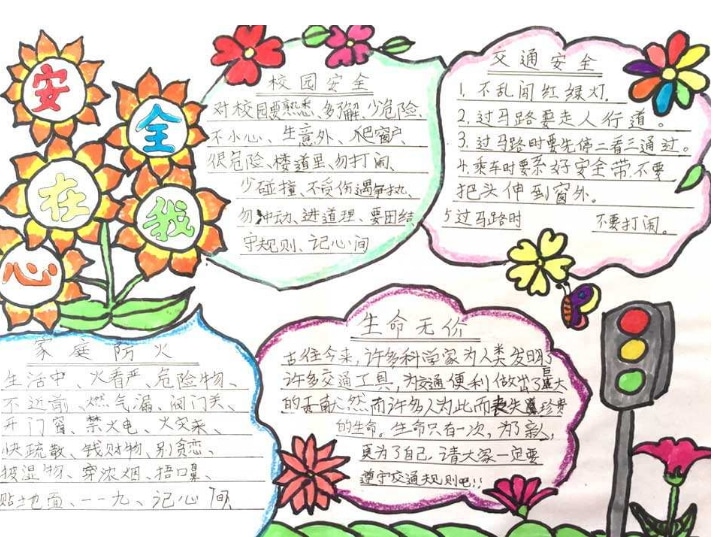 安
全
在
我
心
校园安全
对校园要熟悉、多了解、少危险、
不小心、生意外、爬窗户、
很危险、楼道里、勿打闹、
少碰撞、不受伤、遇
勿冲动、进道理、要团结、
守规则、记心间
交通安全
1. 不乱闯红绿灯.
2. 过马路要走人行道。
3. 过马路时要先停二看三通过.
4. 乘车时要系好安全带.不要
把头伸到窗外。
5 过马路时 不要打闹。
家庭防火
生活中、火看严、危险物、
不近前、燃气漏、闭门关、
开门窗、禁火电、火突来、
快疏散、钱财物、别贪恋、
披湿物、穿浓烟、捂口鼻、
贴地面、一一九、记心间
生命无价
古往今来,许多科学家为人类发明了
许多交通工具,为交通便利做出了巨大
的贡献。然而许多人为此而丧失珍贵
的生命。生命只有一次,为了亲人,
更为了自己,请大家一定要
遵守交通规则吧!!